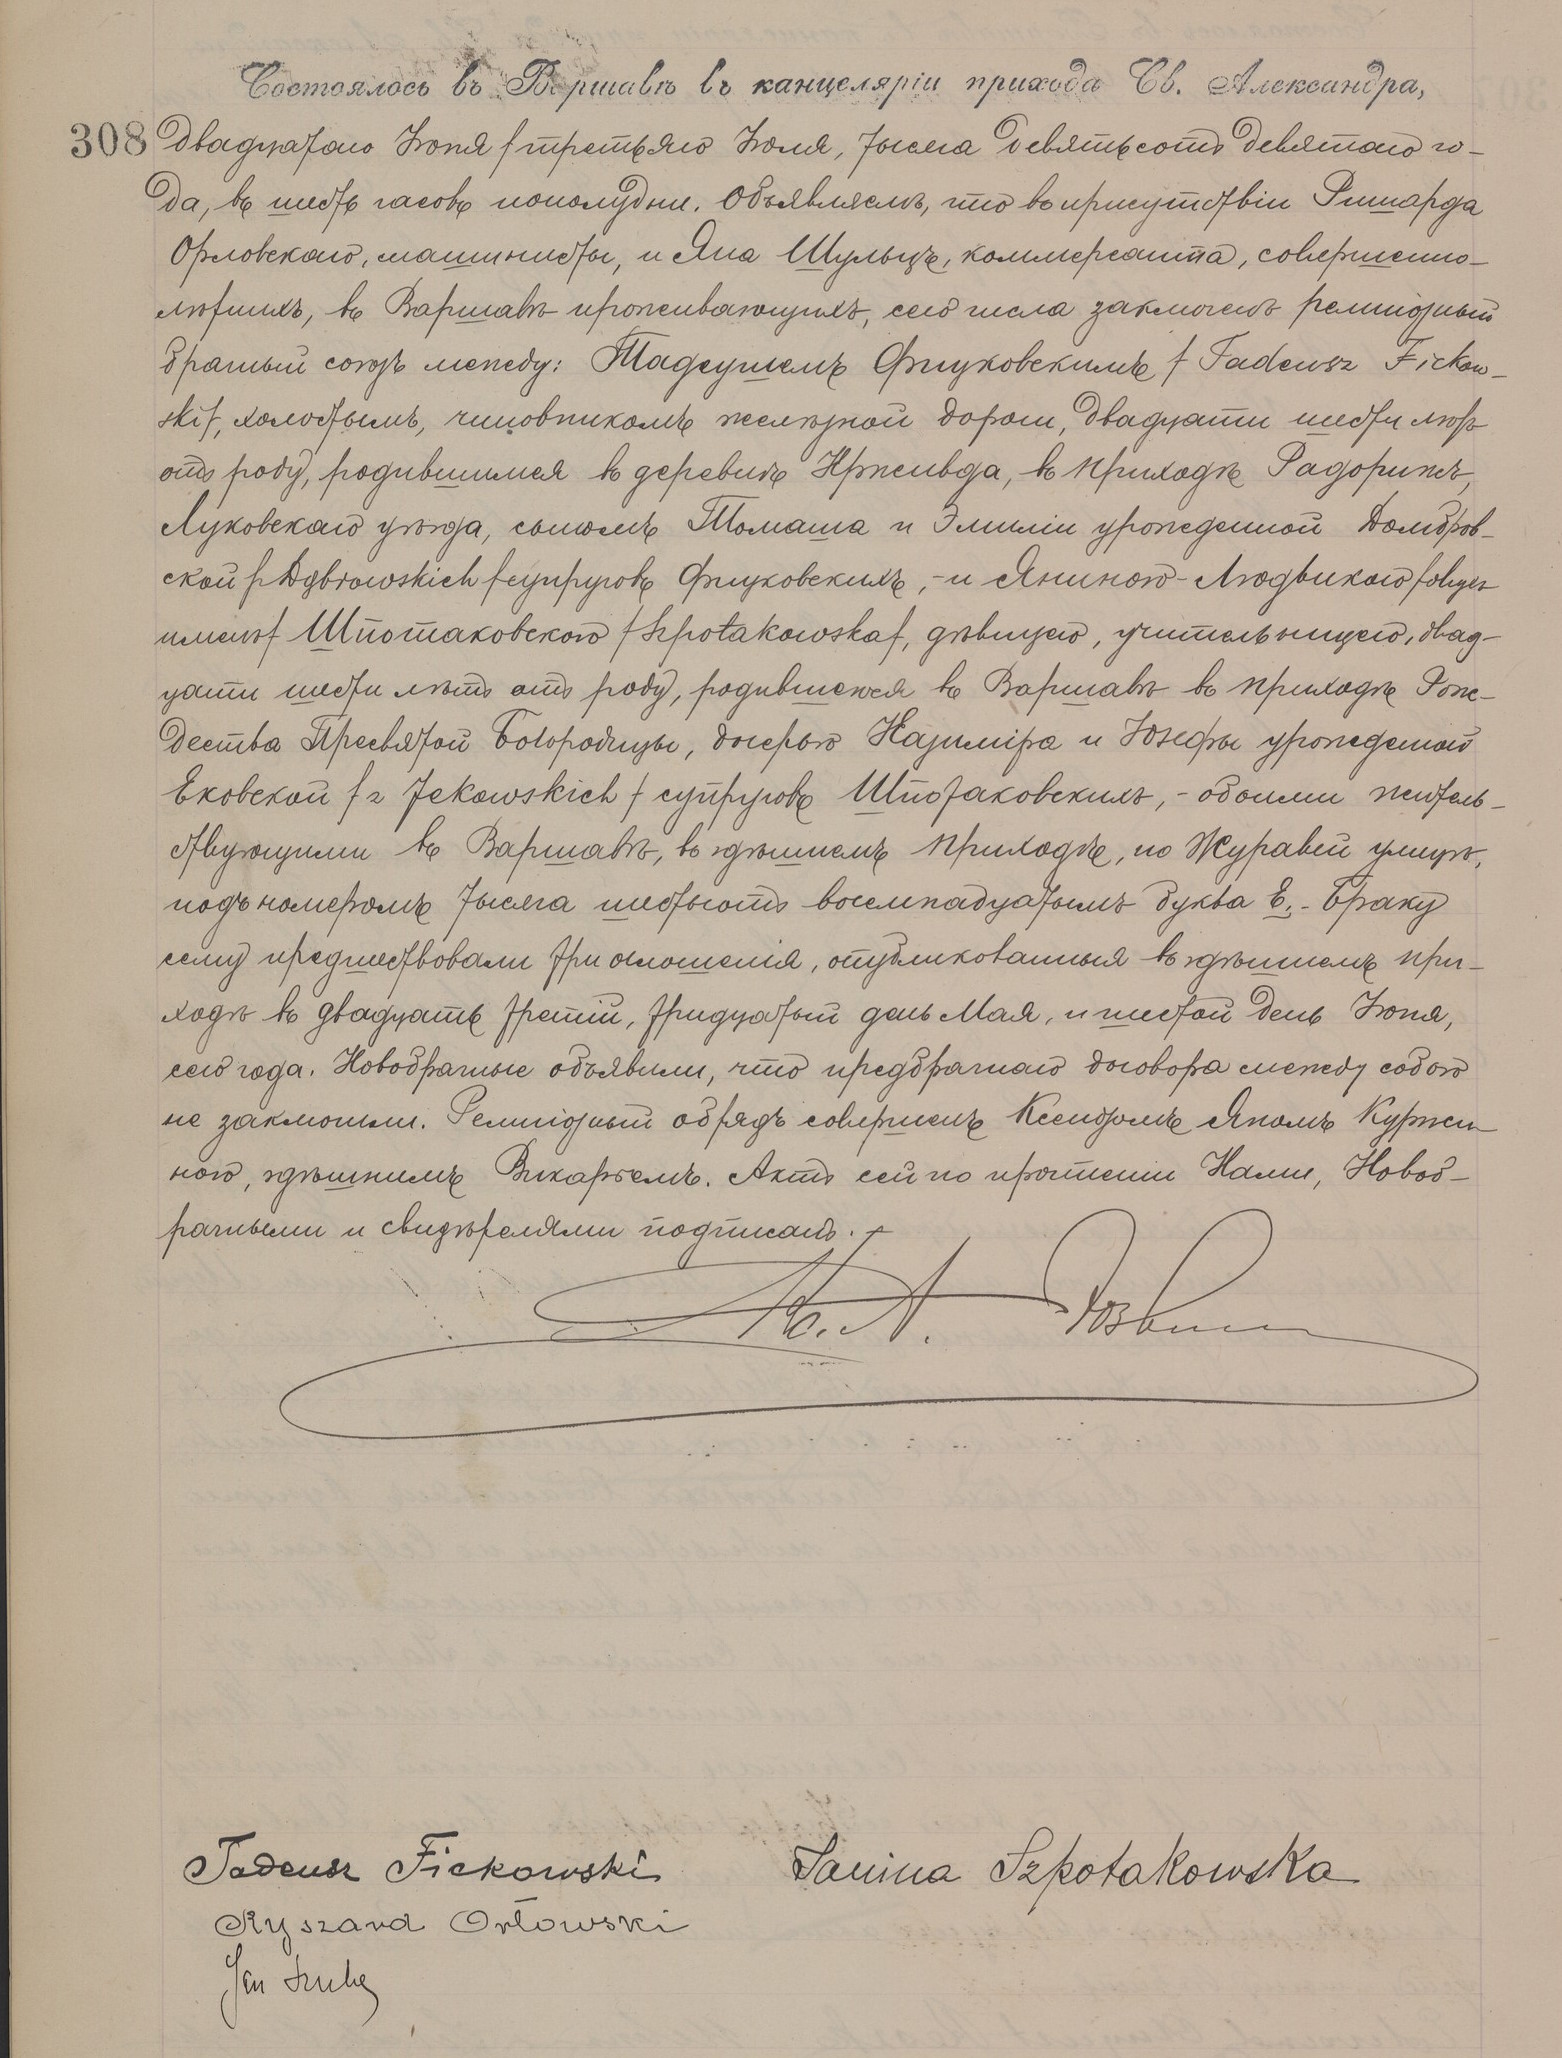 Состоялось въ Варшавѣ въ канцеляріи прихода Св. Александра,
308 двадцатаго Іюня /третьяго Іюля, тысяча девятьсотъ девятаго го-
да, въ шесть часовъ пополудни. Объявляемъ, что въ присутствіи Ришарда
Орловскаго, машинисты, и Яна Шульцъ, коммерсанта, совершенно-
лѣтнихъ, въ Варшавѣ проживающихъ, сего числа заключенъ религіозный
брачный союзъ между: Тадеушемъ Фицковскимъ / Tadeusz Fickow-
ski/, холостымъ, чиновникомъ желѣзной дороги, двадцати шести лѣтъ
отъ роду, родившимся въ деревнѣ Кржывда, въ приходѣ Радорыжъ,
Луковскаго уѣзда, сыномъ Томаша и Эмиліи урожденной Домбров-
ской /z Dąbrowskich/ супруговъ Фицковскихъ, - и Яниною-Людвикою /обоихъ
именъ/ Шпотаковскою /Szpotakowska/, дѣвицею, учительницею, двад-
цати шести лѣтъ отъ роду, родившеюся въ Варшавѣ въ приходѣ Рож-
дества Пресвятой Богородицы, дочерью Казиміра и Юзефы урожденной
Ековской / z Jekowskich / супруговъ Шпотаковскихъ, - обоими житель-
ствующими въ Варшавѣ, въ здѣшнемъ приходѣ, по Журавей улицѣ,
подъ номеромъ тысяча шестьсотъ восемнадцатымъ буква Е. - Браку
сему предшествовали три оглашенія, опубликованныя въ здѣшнемъ при-
ходѣ въ двадцать третій, тридцатый день Мая, и шестой день Іюня,
сего года. Новобрачные объявили, что предбрачнаго договора между собою
не заключили. Религіозный обрядъ совершенъ Ксендзомъ Яномъ Куржи-
ною, здѣшнимъ Викаріемъ. Актъ сей по прочтеніи Нами, Новоб-
рачными и свидѣтелями подписанъ. -
Tadeusz Fickowski Janina Szpotakowska
Ryszard Orłowski
Jan